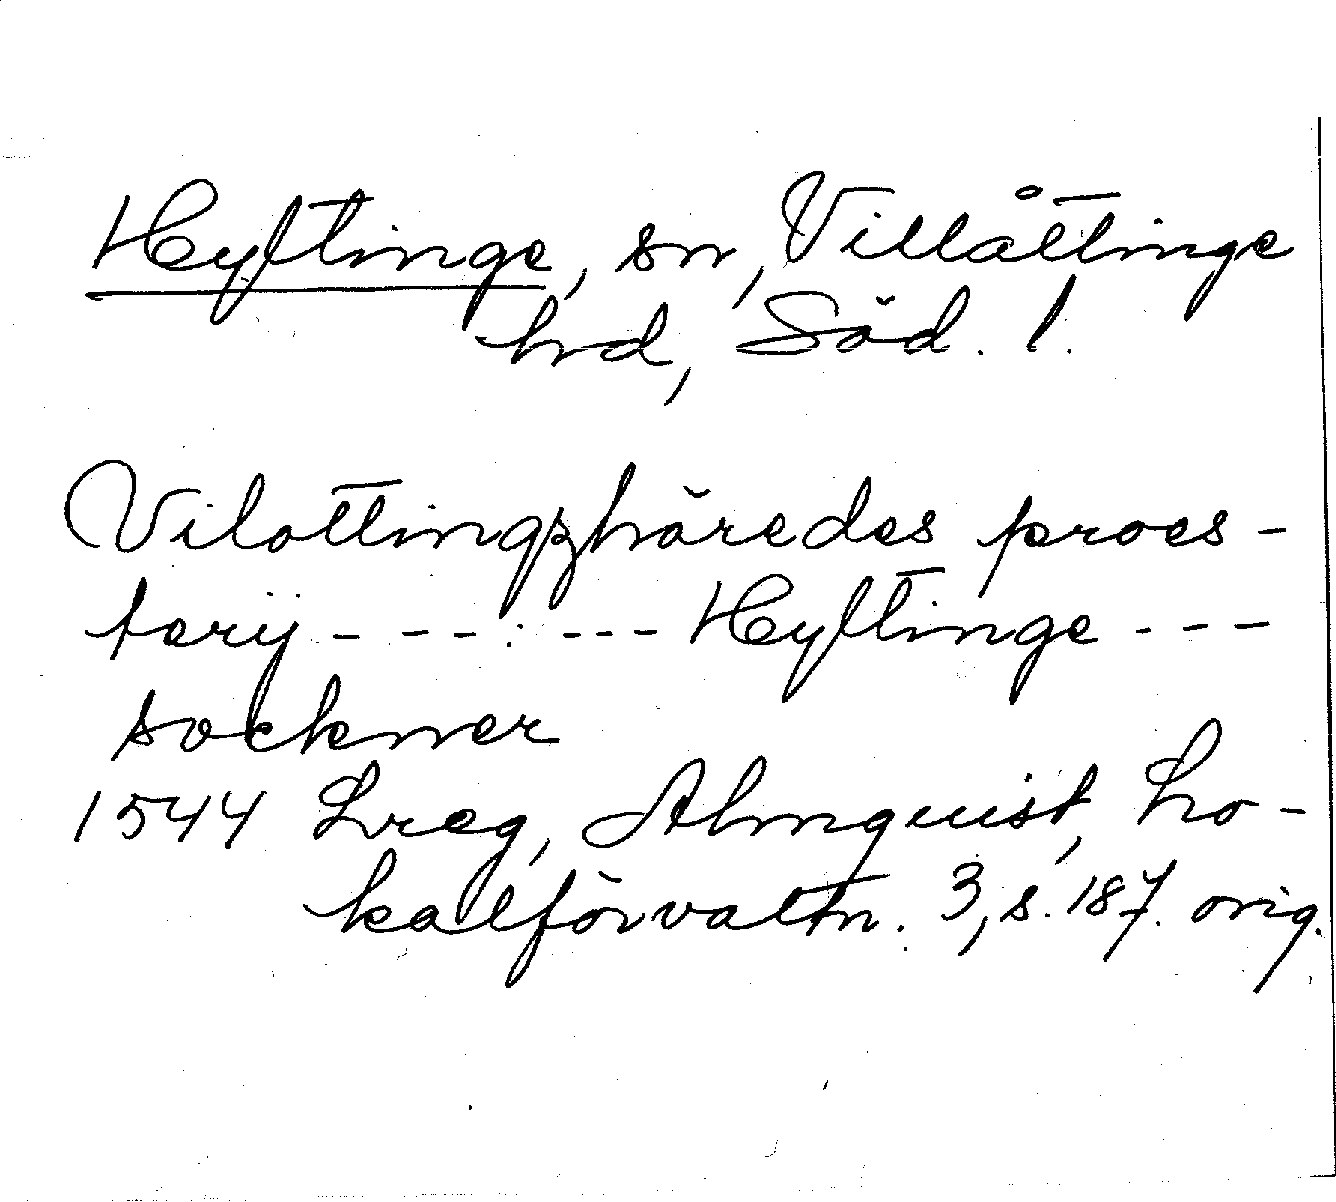 Heyftinge, sn, Villåttinge
hd, Söd. l.
Vilottingzhäredes proes-
terÿ - - - : - - - Heyftinge - - -
sockner
1544 Lreg, Almquist, Lo-
kalförvaltn. 3, s. 187. orig.